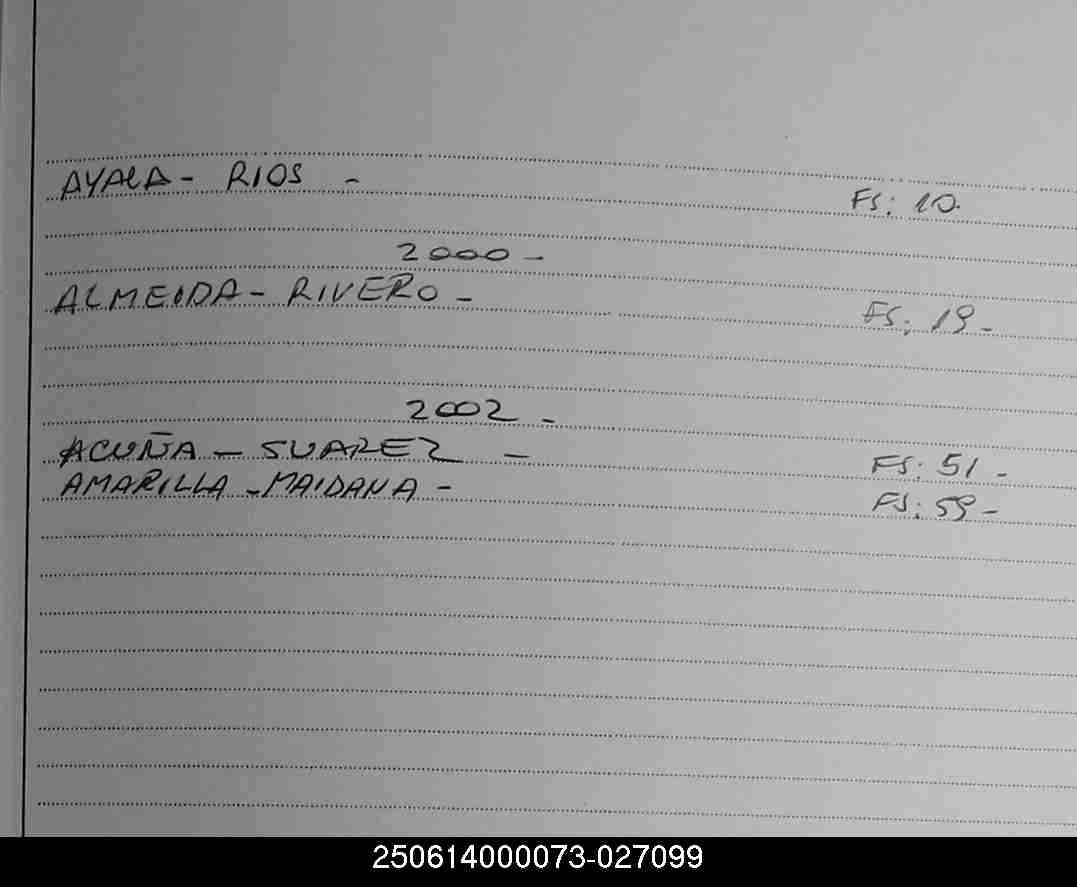 AYALA - RIOS - FS: 10.
2000 -
ALMEIDA - RIVERO - FS: 19 -
2002 -
ACUÑA - SUAREZ - FS: 51 -
AMARILLA - MAIDANA - FS: 59 -
250614000073-027099